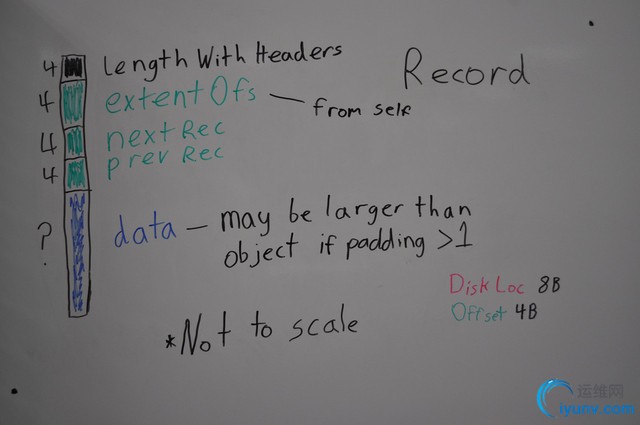 Record
4 Length With Headers
4 extentOfs — from self
4 nextRec
4 prev Rec
? data — may be larger than
object if padding >1
Disk Loc 8B
Offset 4B
*Not to scale
运维网
iyunv.com